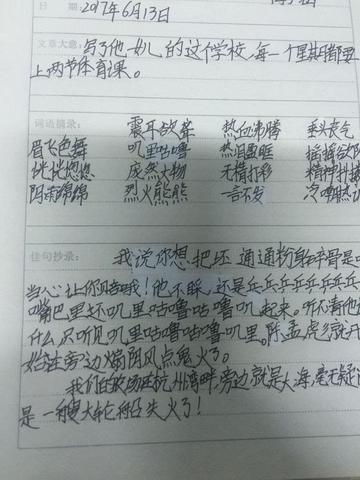 日 期: 2017年6月13日
文章大意: 写了他一女儿的这个学校,每一个星期都要
上两节体育课。
词语摘录: 震耳欲聋 热血沸腾 垂头丧气
眉飞色舞 叽里咕噜 热泪盈眶 摇摇欲
恍恍悠悠 庞然大物 无精打彩 精神抖擞
阴雨绵绵 烈火熊熊 一言不发 冷嘲热
佳句抄录: 我说你想把坯 通通粉身碎骨是
当心让你赔哦!他不睬,还是乒乒乒乒乒乒乒
嘴巴里坏叽里咕噜咕噜叽起来。听不清他
什么,只听见叽里咕噜咕噜叽里。陈孟虎就
始往旁边煽阴风点鬼火了。
我们的 在杭州湾畔,旁边就是大海,毫无疑
是一艘大轮船失火了!